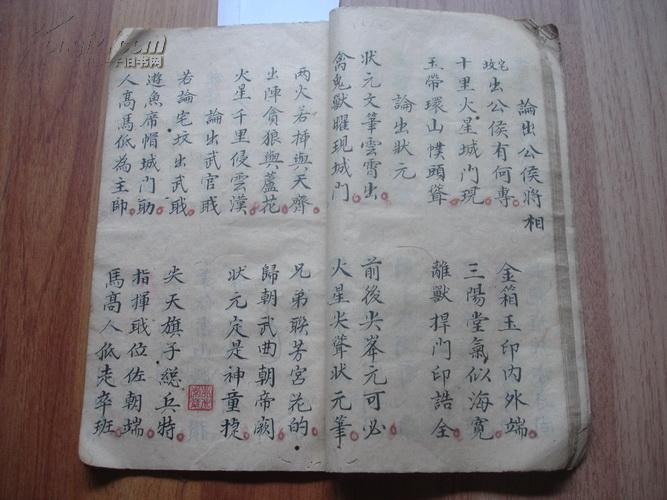 論出公侯將相
宅墳出公侯有何專 金箱玉印內外端
十里火星城門現 三陽堂氣似海寬
玉帶環山幞頭聳 離獸捍門印誥全
論出狀元
狀元文筆雲霄出 前後尖峯元可必
禽鬼獸曜現城門 火星尖聳狀元筆
兩火若揷與天齊 兄弟聯芳宮花的
出陣貪狼與蘆花 歸朝武曲朝帝闕
火星千里侵雲漢 狀元定是神童捷
論出武官戝
若論宅坟出武戝 尖天旗子總兵特
遊魚席帽城門助 指揮戝位佐朝端
人高馬低為主帥 馬高人低走卒班